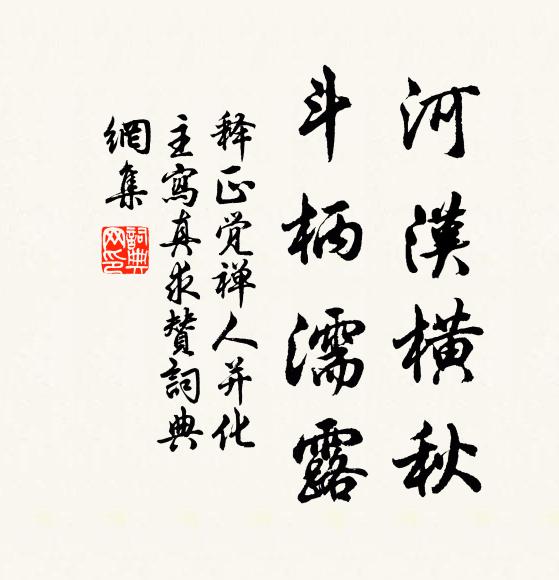 河漢橫秋
斗柄濡露
释正觉禅人并化
主寫真求贊詞典
網集
詞典网印